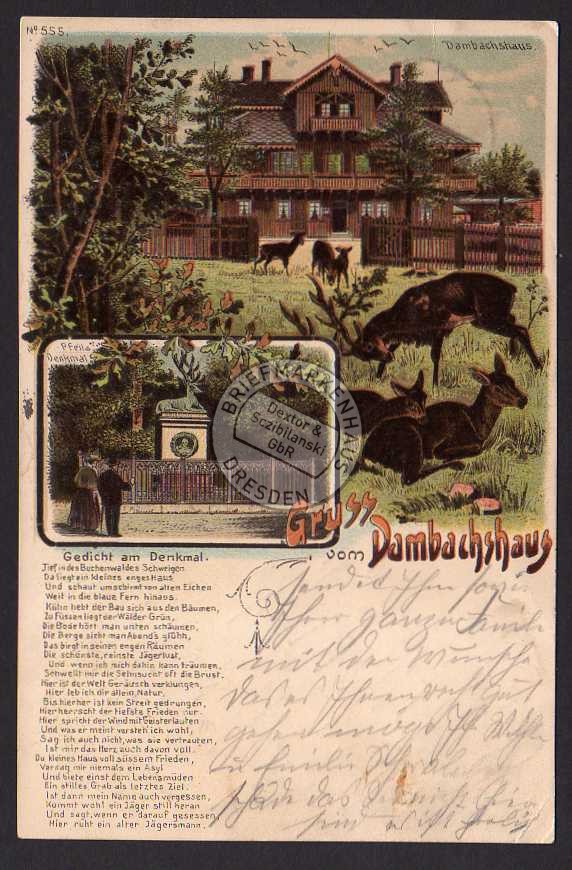 No 555.
Dambachshaus.
Pfeils
Denkmal
BRIEFMARKENHAUS
Dextor &
Sczibilanski
GbR
DRESDEN
Gruss
vom Dambachshaus
Gedicht am Denkmal.
Tief in des Buchenwaldes Schweigen
Da liegt ein kleines enges Haus
Und schaut umschirmt von alten Eichen
Weit in die blaue Fern hinaus.
Kühn hebt der Bau sich aus den Bäumen,
Zu Füssen liegt der Wälder Grün,
Die Bode hört man unten schäumen,
Die Berge sieht man Abends glühn,
Das birgt in seinen engen Räumen
Die schönste, reinste Jägerlust,
Und wenn ich mich dahin kann träumen,
Schwellt mir die Sehnsucht oft die Brust.
Hier ist der Welt Geräusch verklungen,
Hier leb ich dir allein, Natur,
Bis hierher ist kein Streit gedrungen,
Hier herrscht der tiefste Frieden nur.
Hier spricht der Wind mit Geisterlauten
Und was er meint versteh' ich wohl,
Sag ich auch nicht, was sie vertrauten,
Ist mir das Herz auch davon voll.
Du kleines Haus voll süssem Frieden,
Versag mir niemals ein Asyl
Und biete einst dem Lebensmüden
Ein stilles Grab als letztes Ziel.
Ist dann mein Name auch vergessen,
Kommt wohl ein Jäger still heran
Und sagt, wenn er darauf gesessen,
Hier ruht ein alter Jägersmann.
Sendet Ihnen
Ihrer ganzen Familie
mit dem Wunsche
das es Ihnen recht gut
gehen
das